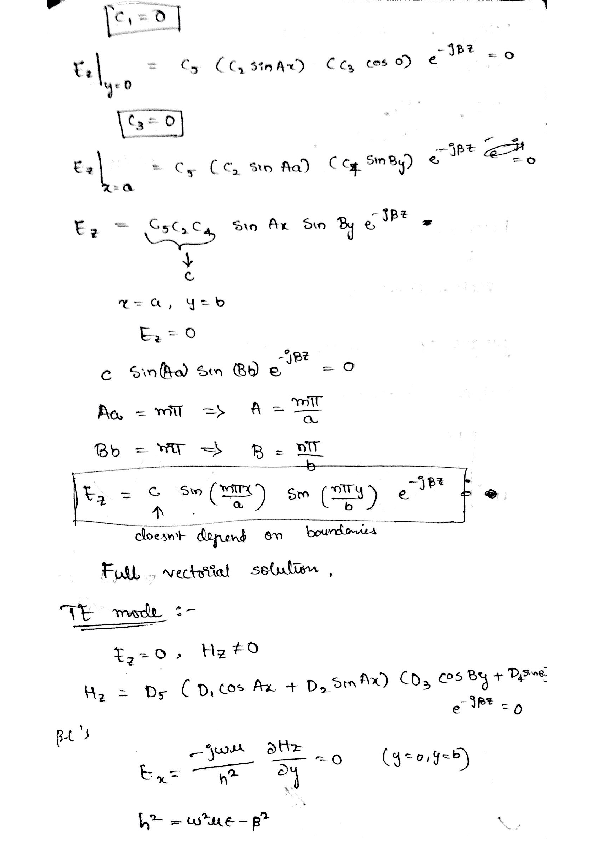 C₁ = 0
E_z|_{y=0} = C₅ (C₂ sin Ax) (C₃ cos 0) e^{-jβz} = 0
C₃ = 0
E_z|_{x=a} = C₅ (C₂ sin Aa) (C₄ sin By) e^{-jβz} = 0
E_z = C₅C₂C₄ sin Ax sin By e^{-jβz}
↓
C
x = a, y = b
E_z = 0
C sin(Aa) sin (Bb) e^{-jβz} = 0
Aa = mπ => A = mπ/a
Bb = nπ => B = nπ/b
E_z = C sin (mπx/a) sin (nπy/b) e^{-jβz}
↑
doesn't depend on boundaries
Full vectorial solution,
TE mode :-
E_z = 0, H_z ≠ 0
H_z = D₅ (D₁ cos Ax + D₂ sin Ax) (D₃ cos By + D₄ sin
e^{-jβz} = 0
BC's
E_x = -jωμ/h² ∂H_z/∂y = 0 (y=0, y=b)
h² = ω²με - β²